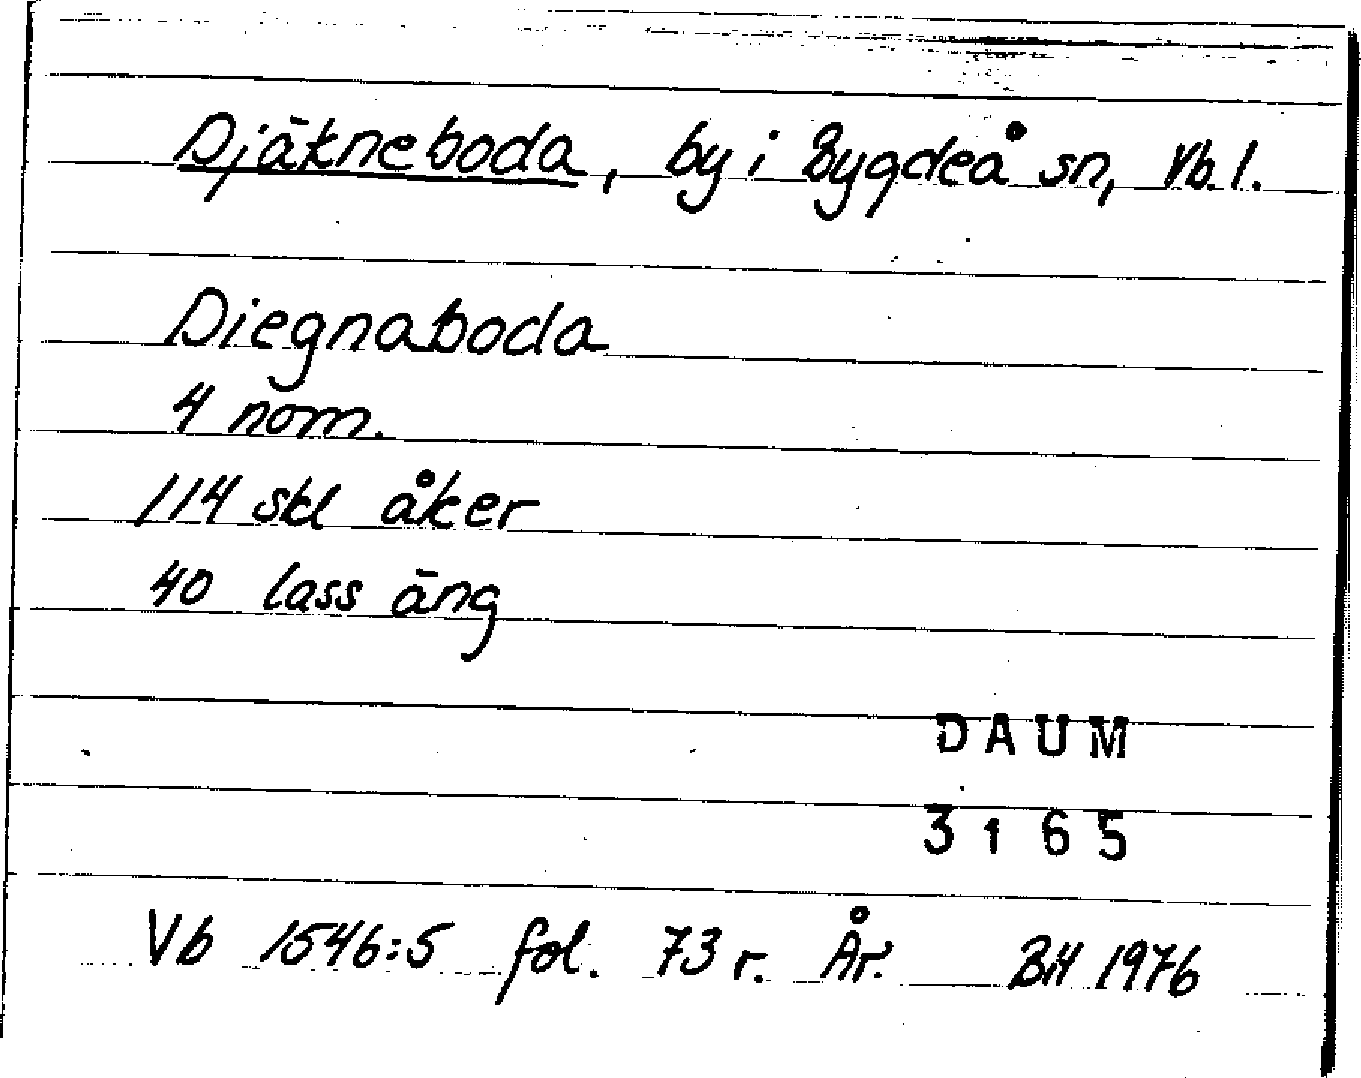 Djäkneboda, by i Bygdeå sn, Vb. l.
Diegnaboda
4 nom.
114 skl åker
40 lass äng
DAUM
3165
Vb 1546:5 fol. 73 r. År. BH 1976